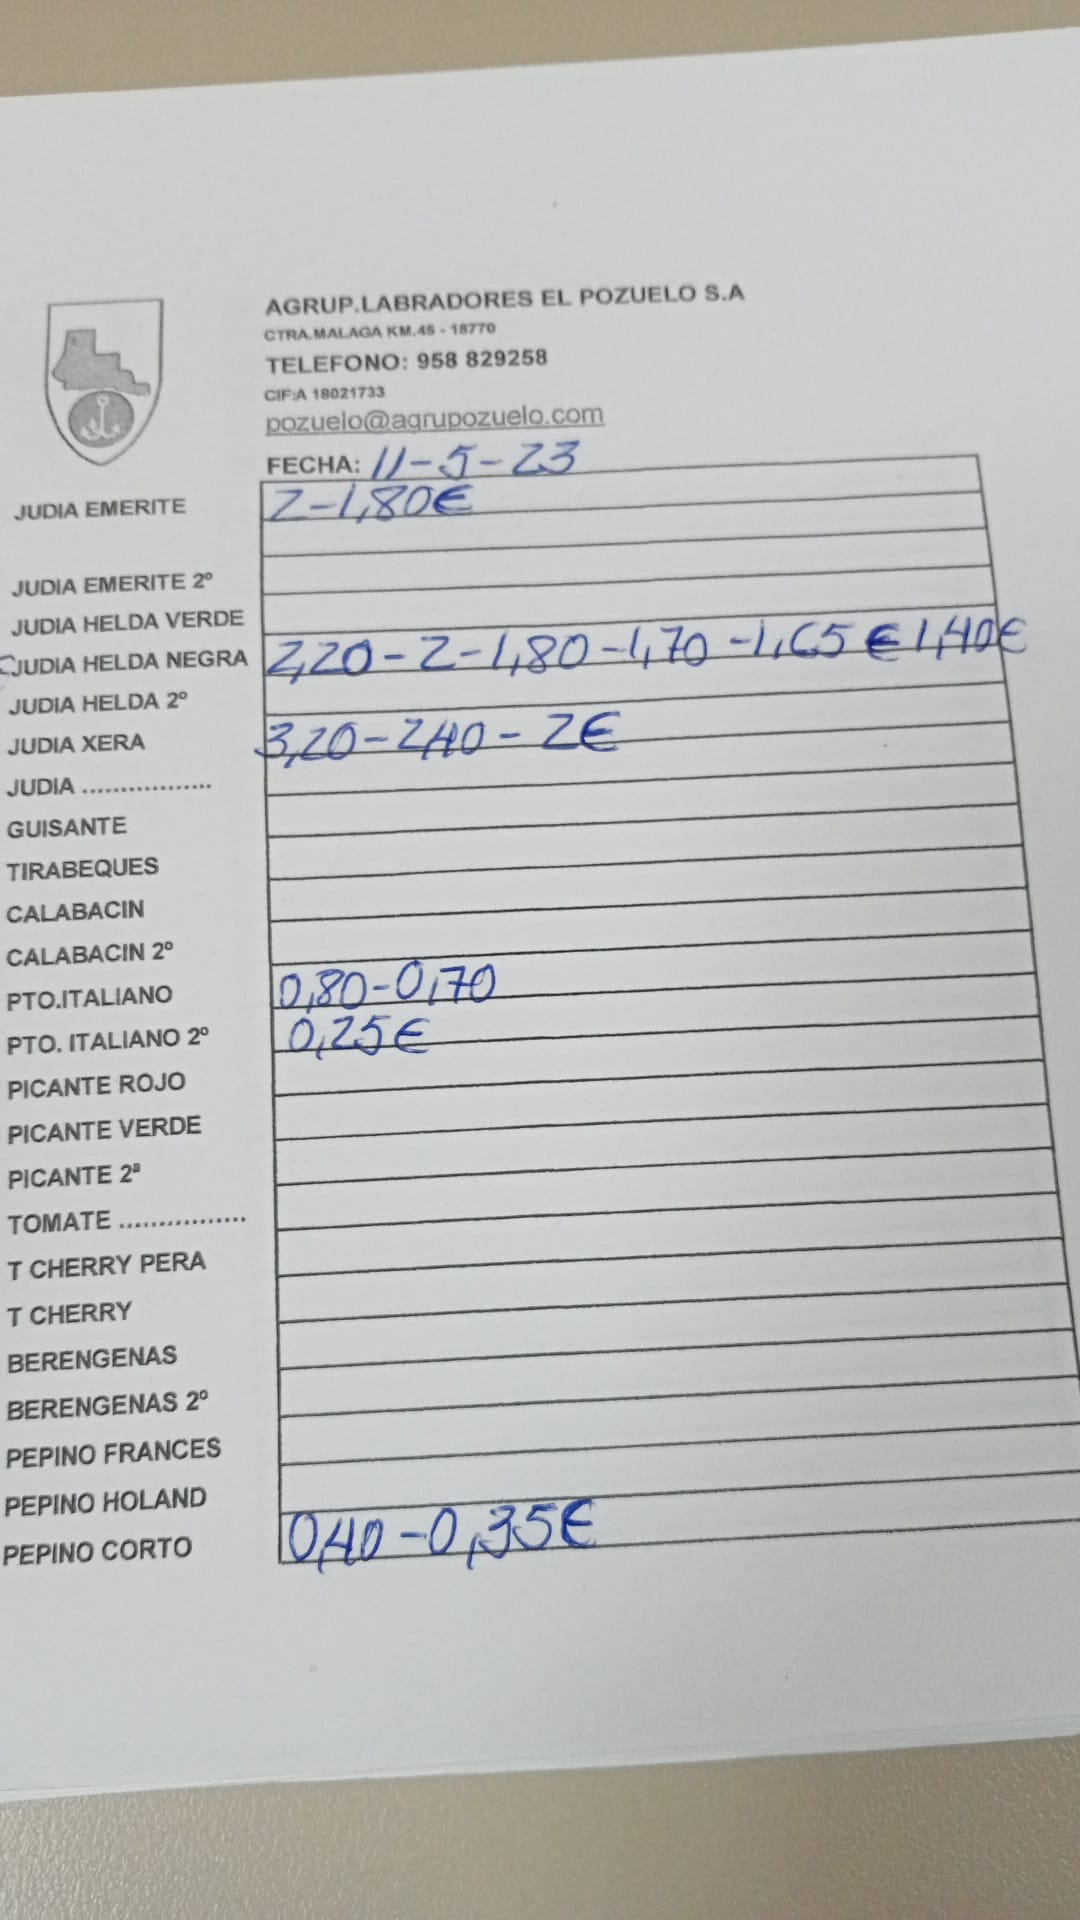 AGRUP.LABRADORES EL POZUELO S.A
CTRA.MALAGA KM.45 - 18770
TELEFONO: 958 829258
CIF:A 18021733
pozuelo@agrupozuelo.com
FECHA: 11-5-23
JUDIA EMERITE 2-1,80€
JUDIA EMERITE 2º
JUDIA HELDA VERDE
JUDIA HELDA NEGRA 2,20-2-1,80-1,70-1,65€ 1,40€
JUDIA HELDA 2º
JUDIA XERA 3,20-2,40-2€
JUDIA .................
GUISANTE
TIRABEQUES
CALABACIN
CALABACIN 2º
PTO.ITALIANO 0,80-0,70
PTO. ITALIANO 2º 0,25€
PICANTE ROJO
PICANTE VERDE
PICANTE 2ª
TOMATE ................
T CHERRY PERA
T CHERRY
BERENGENAS
BERENGENAS 2º
PEPINO FRANCES
PEPINO HOLAND
PEPINO CORTO 0,40-0,35€